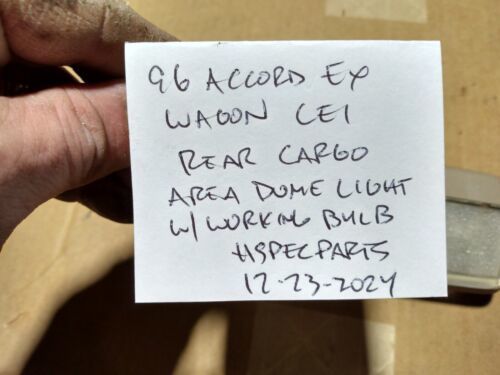 96 ACCORD EX
WAGON CE1
REAR CARGO
AREA DOME LIGHT
W/ WORKING BULB
HSPECPARTS
12-23-2024